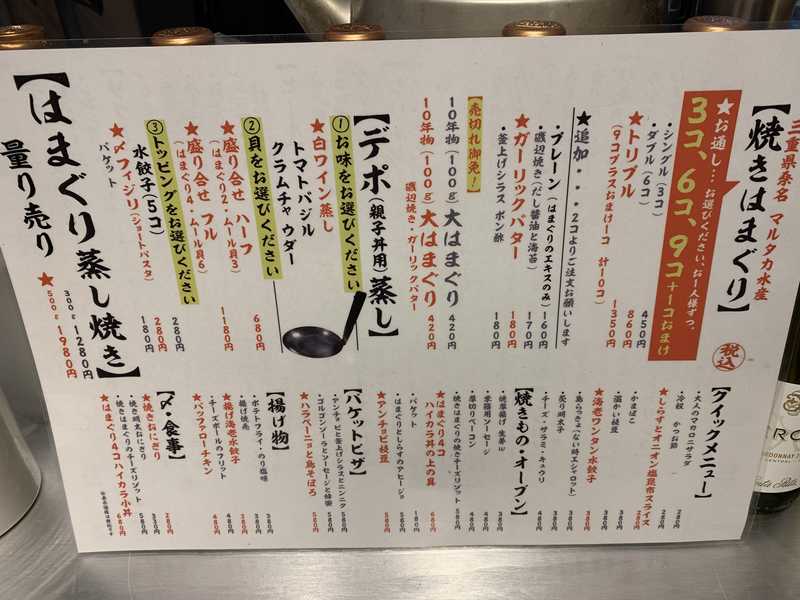 三重県桑名 マルタカ水産
【焼きはまぐり】
★お通し…お選びください、お1人様ずつ、
3コ、6コ、9コ+1コおまけ
税込
・シングル(3コ) 450円
・ダブル(6コ) 860円
★トリプル 1350円
(9コプラスおまけ1コ 計10コ)
★追加・・・2コよりご注文お願いします
・プレーン(はまぐりのエキスのみ) 160円
・磯辺焼き(だし醤油と海苔) 170円
★ガーリックバター 180円
・釜上げシラス ポン酢 180円
【売切れ御免!】
10年物(100g)大はまぐり 420円
10年物(100g)大はまぐり 420円
磯辺焼き・ガーリックバター
【デポ(親子丼用)蒸し】
①お味をお選びください
★白ワイン蒸し
トマトバジル
クラムチャウダー
②貝をお選びください 680円
★盛り合せ ハーフ
(はまぐり2・ムール貝3)
★盛り合せ フル 1180円
(はまぐり4・ムール貝6)
③トッピングをお選びください
水餃子(5コ) 280円
★〆フィジリ(ショートパスタ) 280円
バケット 180円
【はまぐり蒸し焼き】
量り売り
300g 1280円
★500g 1980円
【クイックメニュー】
・大人のマカロニサラダ 280円
・冷奴 かつお節 280円
★しらすとオニオン塩昆布スライス 280円
・かまぼこ
・温かい枝豆
★海老ワンタン水餃子
・島らっきょ(ない時エシャロット)
・炙り明太子
・チーズ・サラミ・キュウリ 480円
【焼きもの・オーブン】
・焼厚揚げ 生姜 380円
・米雞用ソーセージ
・厚切りベーコン 480円
・焼きはまぐりの焼きチーズリゾット 580円
★はまぐり4コ
ハイカラ丼の上の具 680円
・バケット 180円
・はまぐりとしらすのアヒージョ 580円
★アンチョビ枝豆
【バケットピザ】
・アンチョビと釜上げシラスとニンニク 580円
・ゴルゴンゾーラとソーセージと蜂蜜 580円
★ハラペーニョと鳥そぼろ 580円
【揚げ物】
・ポテトフライ・のり塩味 380円
・揚げ焼売 380円
★揚げ海老水餃子 380円
・チーズボールのフリット 480円
★バッファローチキン 480円
【〆・食事】
★焼きおにぎり 280円
・焼き明太おにぎり 330円
・焼きはまぐりのチーズリゾット 580円
★はまぐり4コハイカラ小丼 680円